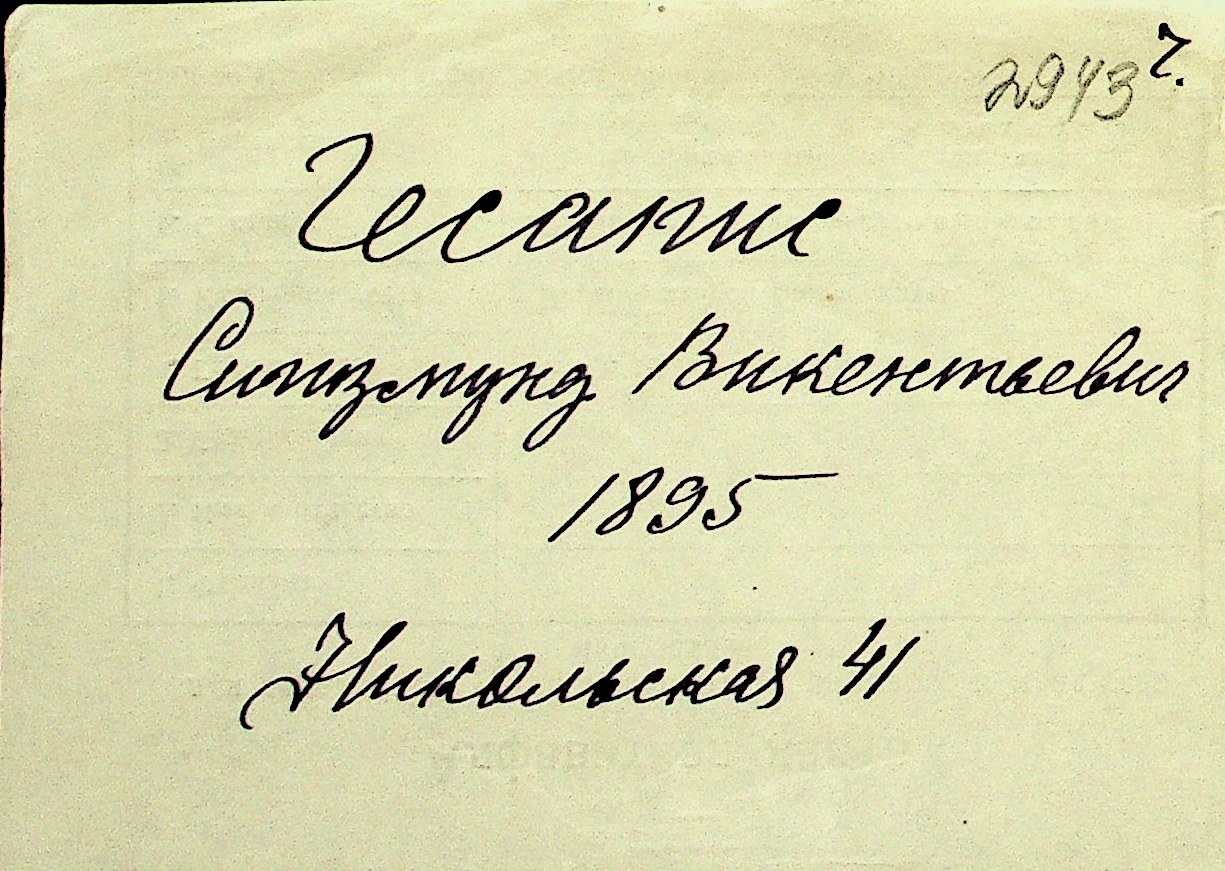 2943 Ч.
Сигизмунд Викентьевич
1895
Никольская 41